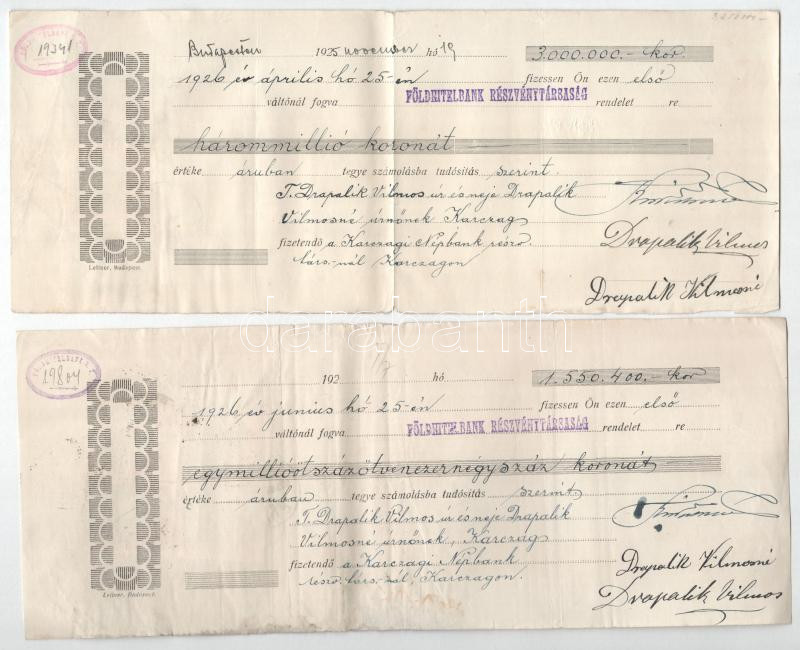 19341
Budapesten 1925 november hó 19
3.000.000.- kor
1926 év április hó 25-én fizessen Ön ezen első
váltónál fogva FÖLDHITELBANK RÉSZVÉNYTÁRSASÁG rendelet re
hárommillió koronát
értéke áruban tegye számolásba tudósítás szerint
T. Drapalik Vilmos úr és neje Drapalik
Vilmosné úrnőnek Karczag
fizetendő a Karczagi Népbank részv
társ.-nál Karczagon
Drapalik Vilmos
Drapalik Vilmosné
Leitner, Budapest.
darabanth
19804
192 hó
1.550.400.- kor
1926 év junius hó 25-én fizessen Ön ezen első
váltónál fogva FÖLDHITELBANK RÉSZVÉNYTÁRSASÁG rendelet re
egymillióötszázötvenezernégyszáz koronát
értéke áruban tegye számolásba tudósítás szerint
T. Drapalik Vilmos úr és neje Drapalik
Vilmosné úrnőnek, Karczag
fizetendő a Karczagi Népbank
részv. társ.-nál, Karczagon.
Drapalik Vilmosné
Drapalik Vilmos
Leitner, Budapest.